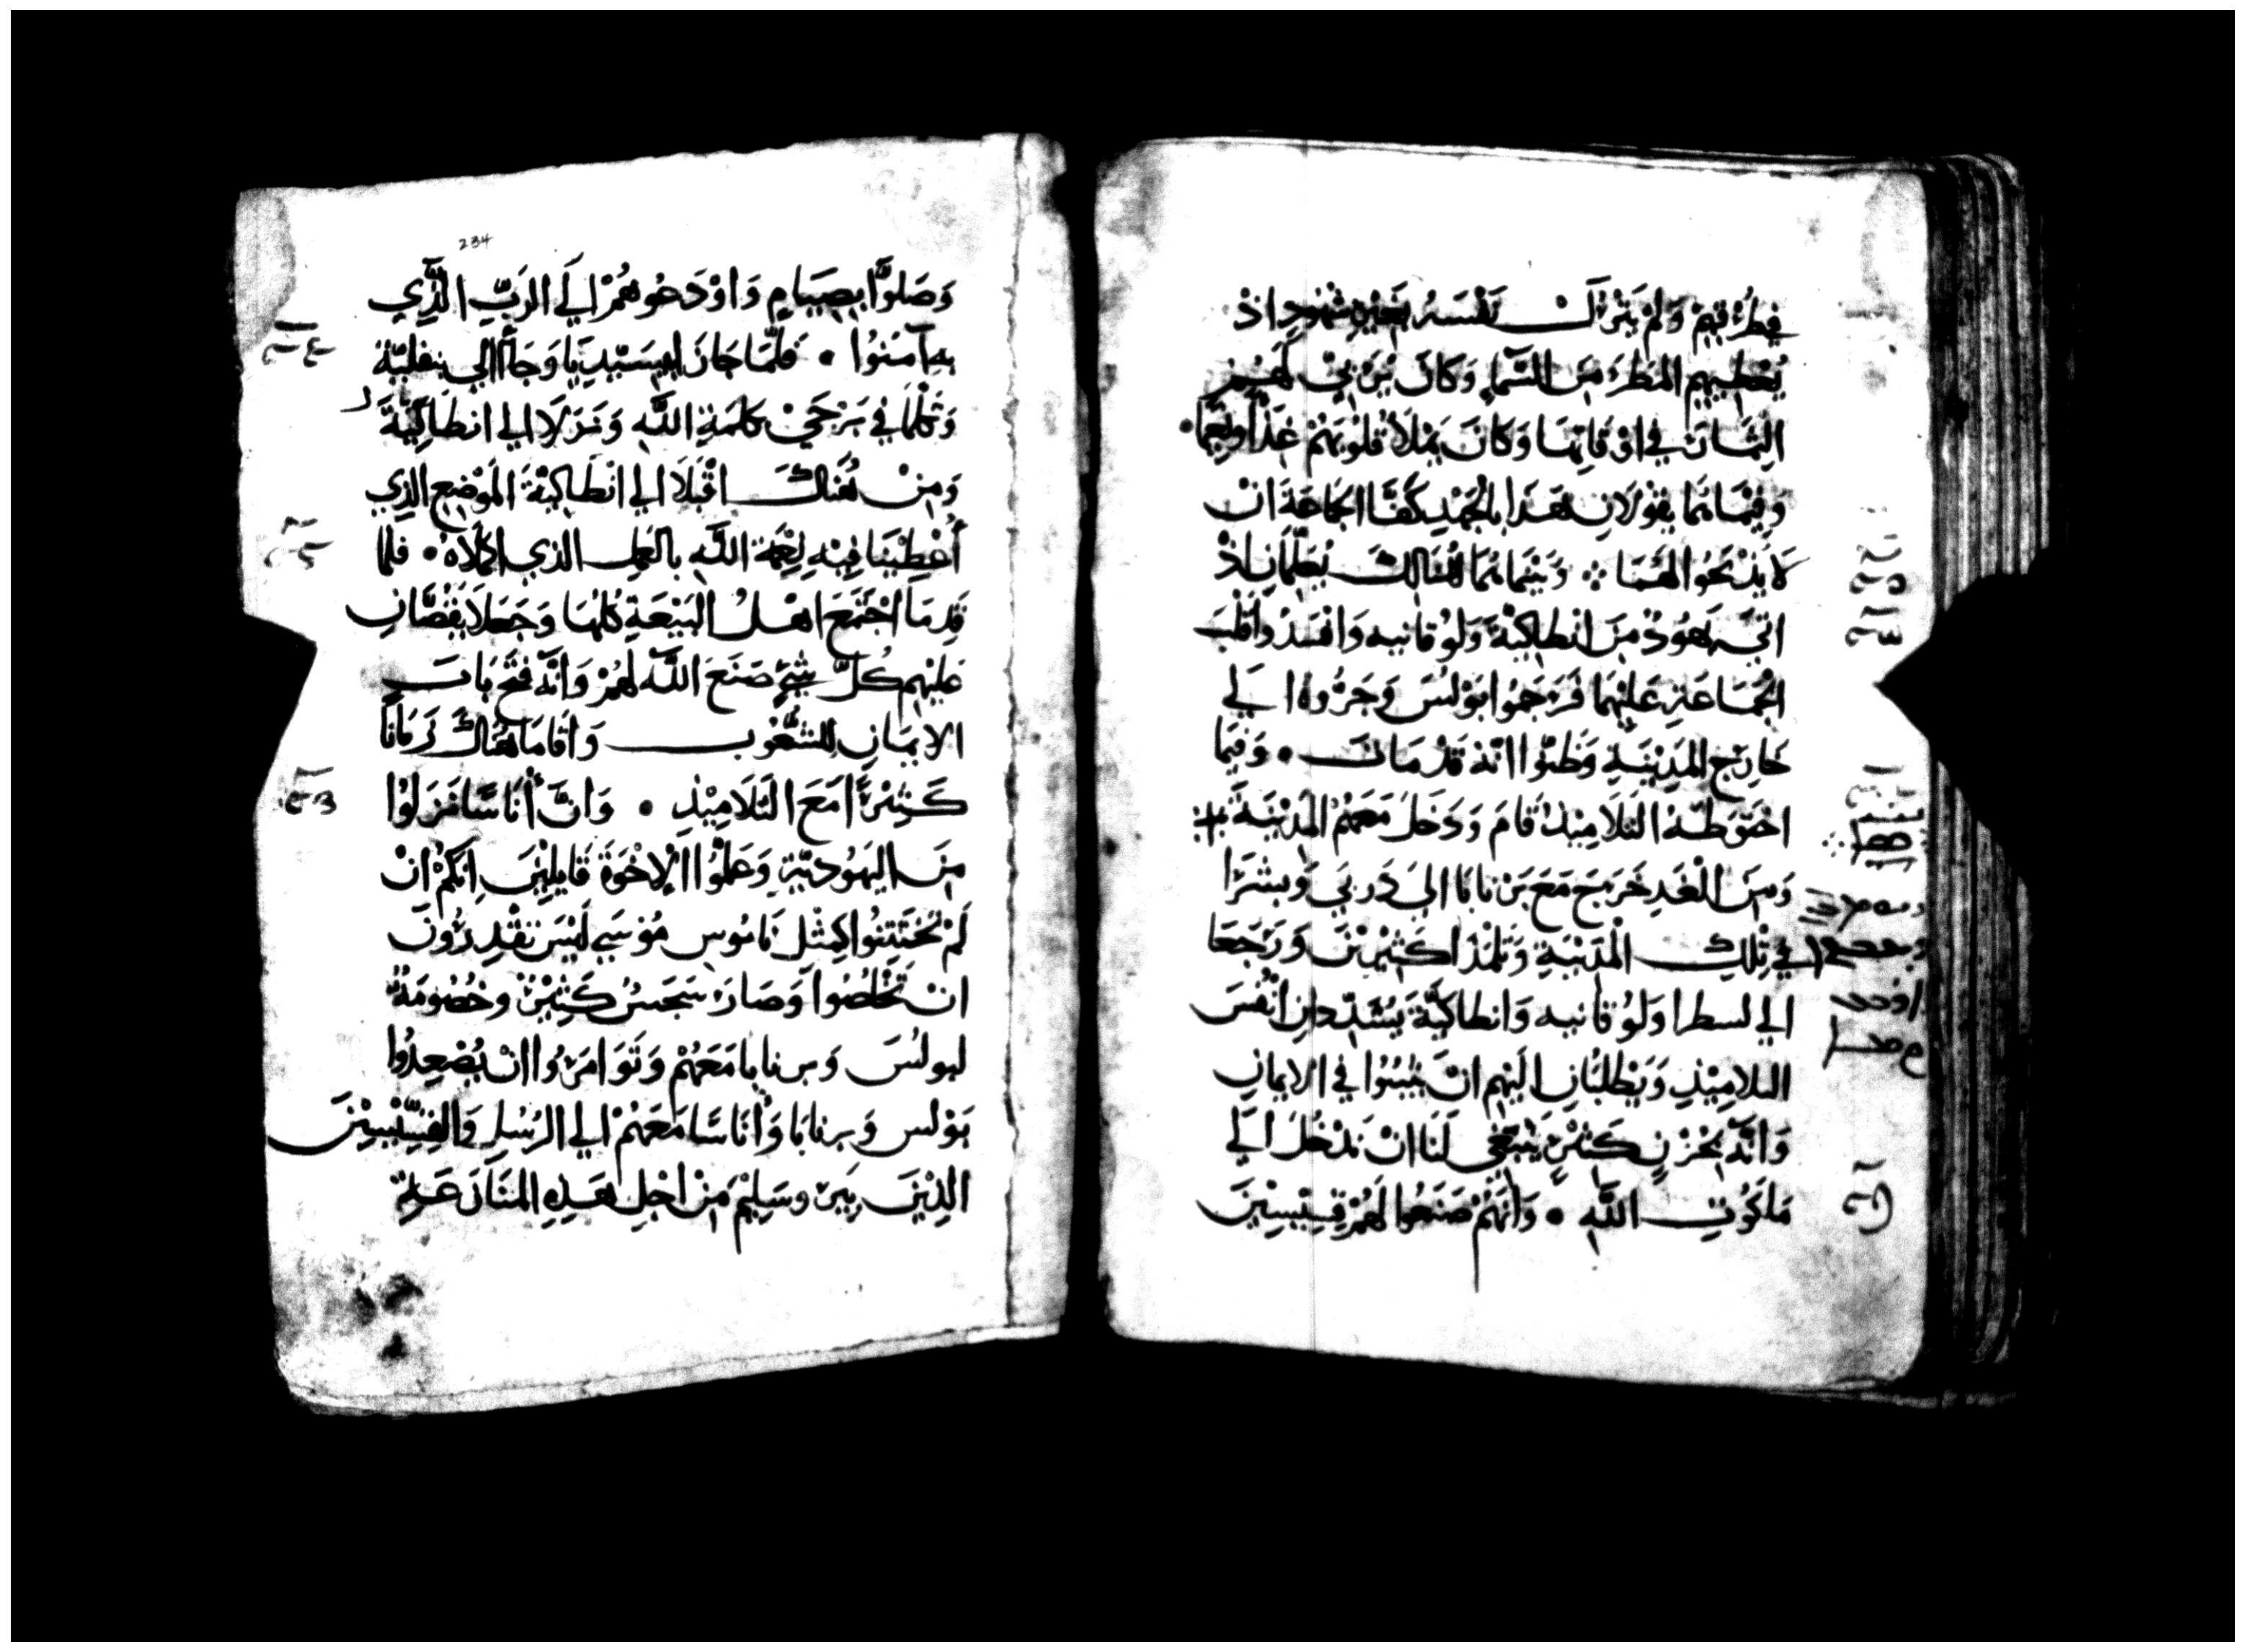 فِطُرُقِهِمْ وَلَمْ يَتْرُكْ نَفْسَهُ بِغَيْرِ شُهُودٍ اذ
يُعْطِيهِم المَطَرَ مِنَ السَّمَاءِ وَكَانَ يُرَبِّي لَهُمُ
الثِمَارَ في اوْقَاتِهَا وَكَانَ يَمْلَأُ قُلُوبَهُمْ غِذَا وَنَعِيمًا •
وَفِيْمَا هُمَا يقوْلَانِ هَذَا بِالجَهْدِ كَفَّا الجَمَاعَةَ انْ
لَا يَذْبَحُوا لَهُمَا ❖ وَبَيْنَمَا هُمَا هُنَالِكَ يُعَلِّمَانِ اذْ
اتَىٰ يَهُوُدٌ مِنَ انطَاكِيَّةَ وَلوُقانيه وَافْسَدُوا قَلْبَ
الجَمَاعَةِ عَلَيْهِمَا فَرَجَمُوا بَوْلُسَ وَجَرُّوهُ الَي
خَارِجِ المَدِيْنَةِ وَظَنُّوا انَّهُ قَدْ مَاتَ • وَفِيْمَا
احْتَوَطَهُ التَلَامِيْذُ قَامَ وَدَخَلَ مَعَهُمُ المَدِيْنَةَ
وَمِنَ الْغَدِ خَرَجَ مَعَ بَرْنَابَا الىَ دَربَي وَبشَّرَا
في تِلْكَ الْمَدِيْنَةِ وَتَلْمَذَا كَثِيْرِيْنَ وَرَجَعَا
الي لسطرا وَلَوُقانيه وَانطاكيَّةَ يُشَدِّدانِ انْفُسَ
التلامِيْذِ وَيَطْلُبَانِ الَيْهِم انْ يَثْبُتُوا في الايمانِ
وَانَّهُ بِحُزْنٍ كَثِيْرٍ يَنْبَغِي لَنَا انْ نَدْخُلَ الَي
مَلَكُوُتِ اللَّهِ • وَانَّهُمْ صَنَعُوا لَهُمْ قِسِّيْسِيْنَ
234
وَصَلوَّا بِصِيَامٍ وَاوْدَعُوهُمْ الَي الرَبِّ الَّذِي
بِهِ آمَنوُا • فَلَمَّا جَازَا بِيسِيْدِيَا وَجَآا الي بنفليَّة
وَتَكَلّما في بَرْجَي كَلِمَةَ اللَّهِ وَنَزَلَا الي انطَاكِيَّةَ
وَمِنْ هُنَاكَ اقْبَلَا الي انْطَاكِيَّةَ المَوْضِعِ الذِي
أُعْطِيْنَا فِيْهِ نِعْمَة اللَّهِ بِالعَمَلِ الذي اكْمَلَاهُ • فلما
قَدِمَا اجْتَمَعَ اهْلُ الْبَيْعَةِ كُلُهَا وَجَعَلَا يَقُصَّانِ
عَلَيْهِم كُلَّ شَيٍّ صَنَعَ اللَّه لَهُمْ وَانَّه فَتَحَ بَابَ
الايمَانِ لِلشُّعُوْبِ وَاقَامَا هُنَاكَ زَمَانًا
كَثِيْرًا مَعَ التَلَامِيْذِ • وَانَّ أُنَاسًا نَزَلوْا
مِنَ اليَهُودِيَّةِ وَعَلَّمُوُا الْاِخْوَةَ قَايِلِيْنَ اِنَّكُمْ انْ
لَمْ تُخْتَتِنُوا كمِثْلِ نَامُوسِ مُوْسَي لَيْسَ تَقْدِرُوُنَ
انْ تَخْلُصُوا وَصَارَ سَجَسٌ كَثِيْرٌ وخُصُومَةٌ
لبولُسَ وَبرنابا مَعَهُمْ وَتَوَامَرُوا انْ يُصْعِدُوا
بَوْلس وَبرنابَا وَأُنَاسًا مَعَهُمْ الي الرُسُلِ وَالقِسِّيْسِيْنَ
الذِيْنَ بِيَرُوسَلِيْم مِنْ اجْلِ هَذِهِ المنَازَعَةِ